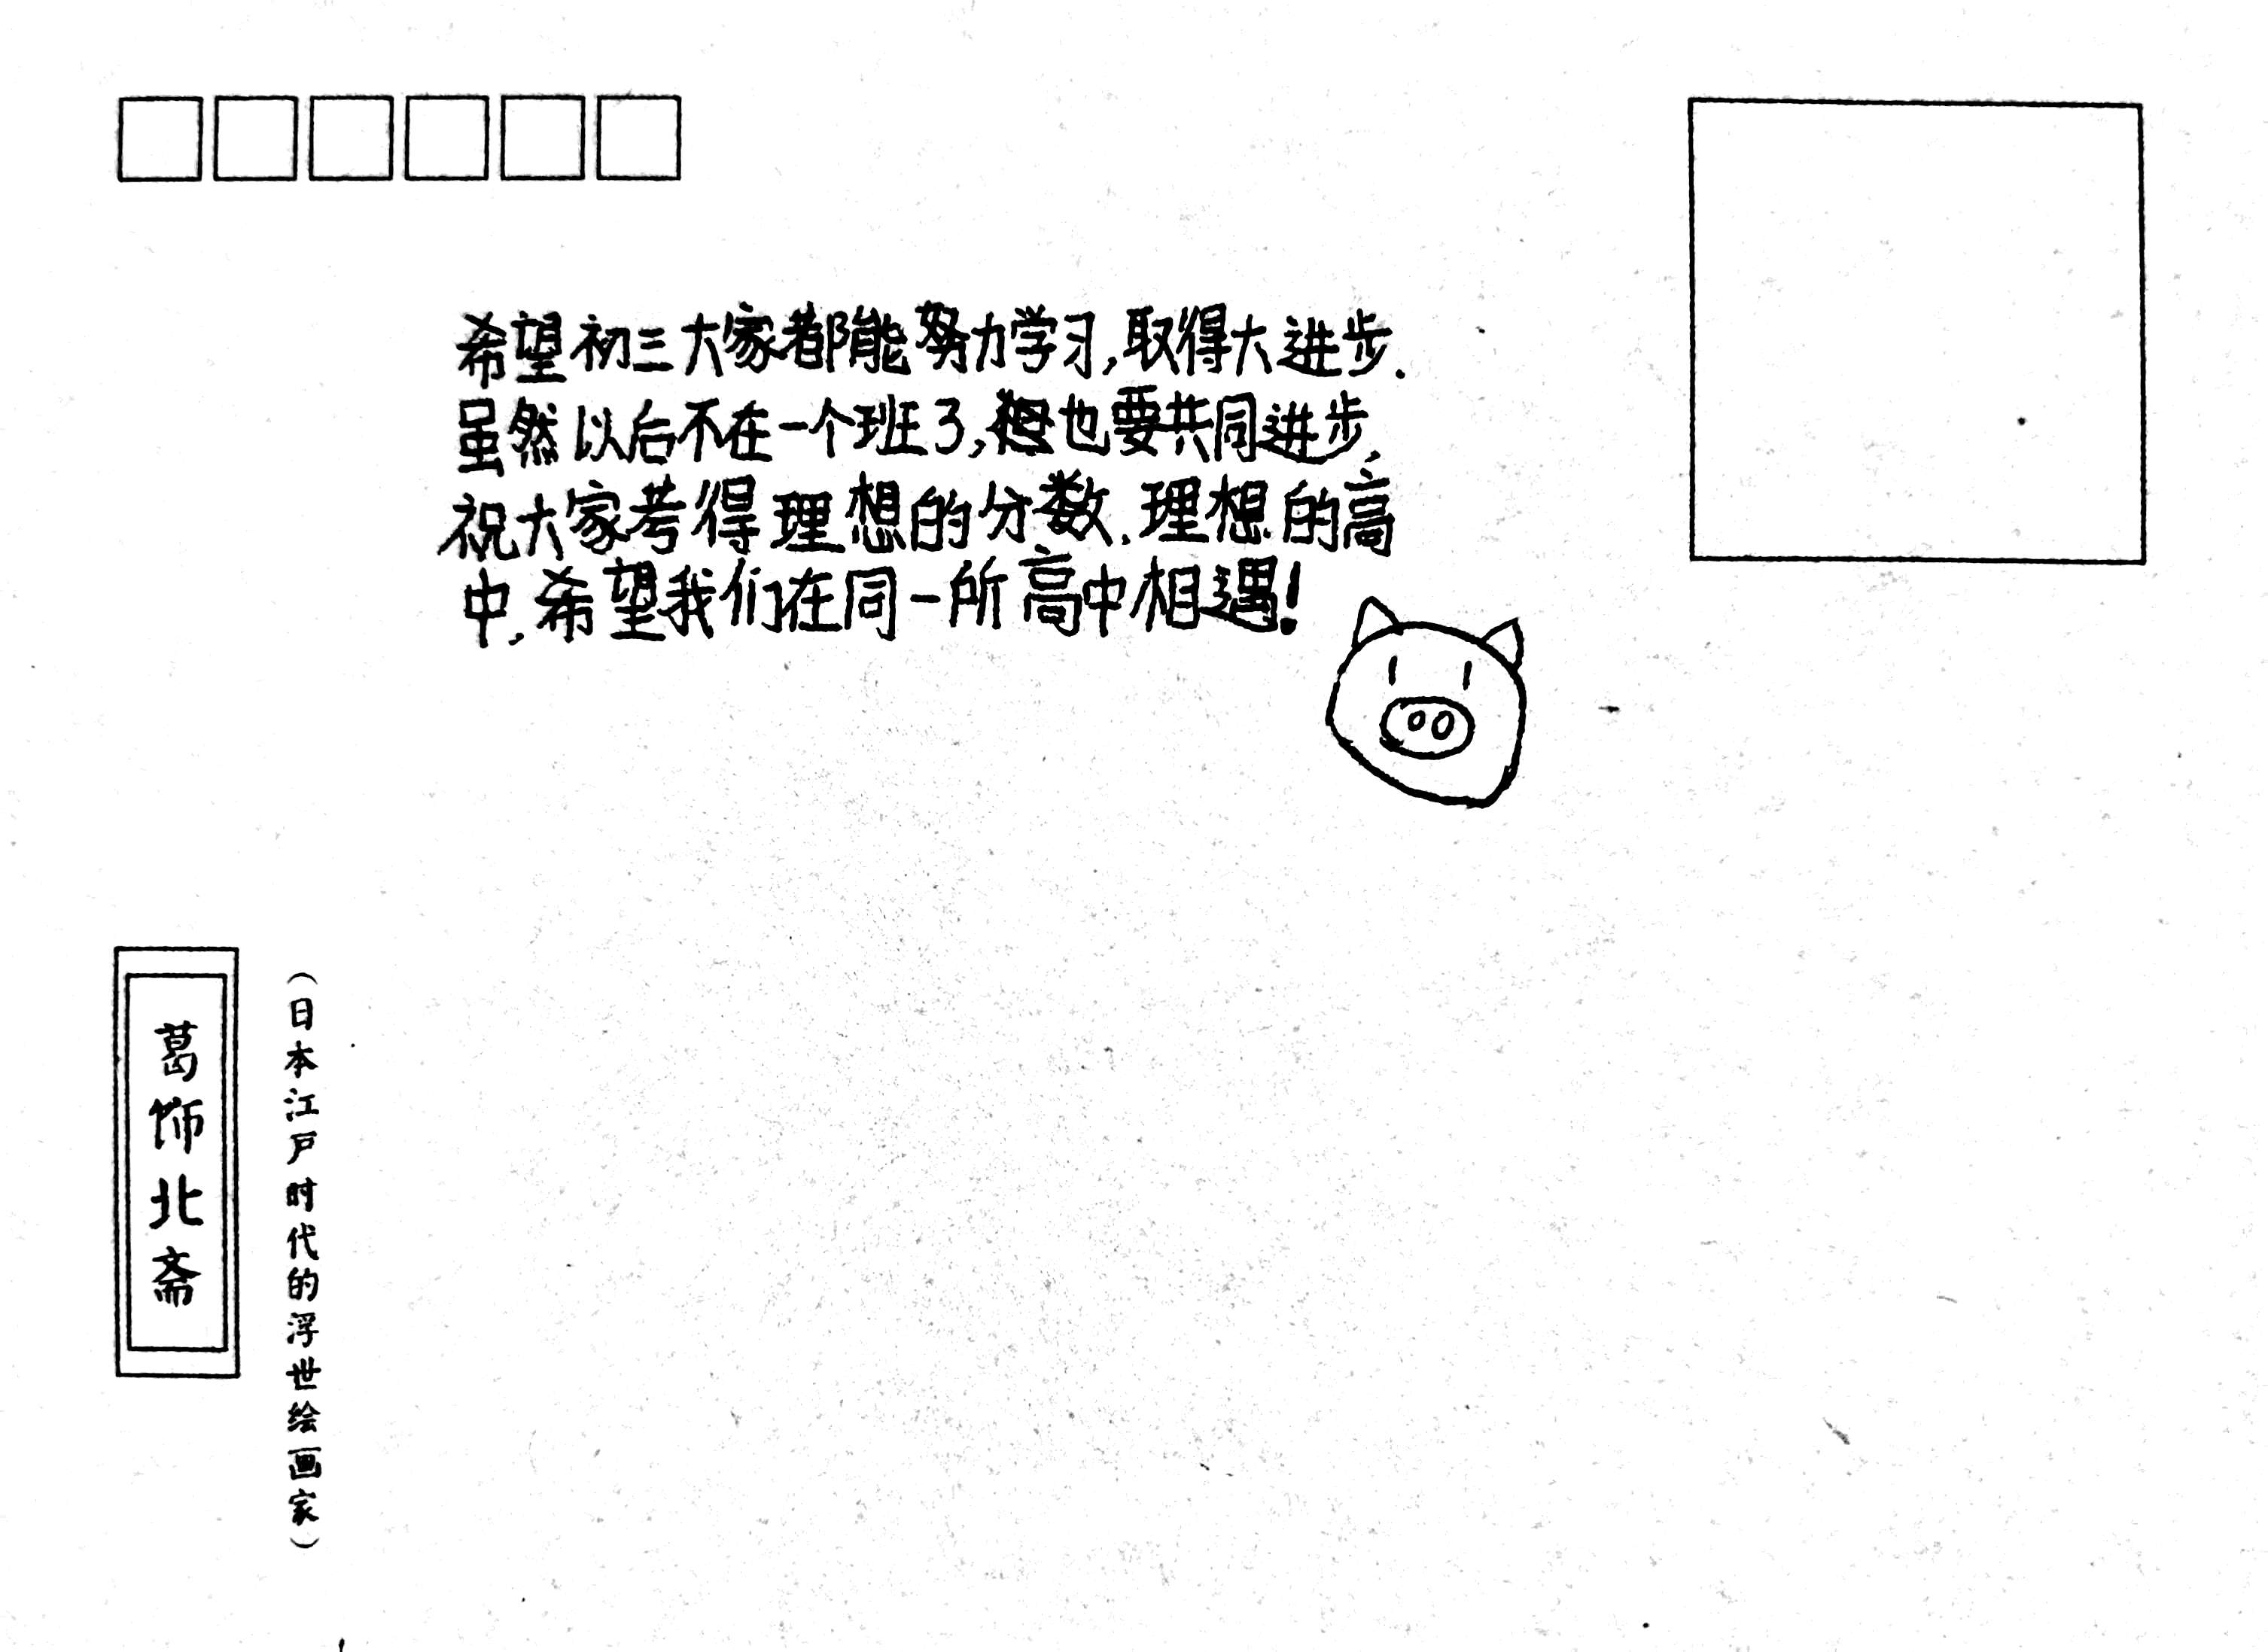 希望初三大家都能努力学习,取得大进步.
虽然以后不在一个班了,但也要共同进步,
祝大家考得理想的分数.理想的高
中,希望我们在同一所高中相遇!
葛饰北斋
(日本江户时代的浮世绘画家)